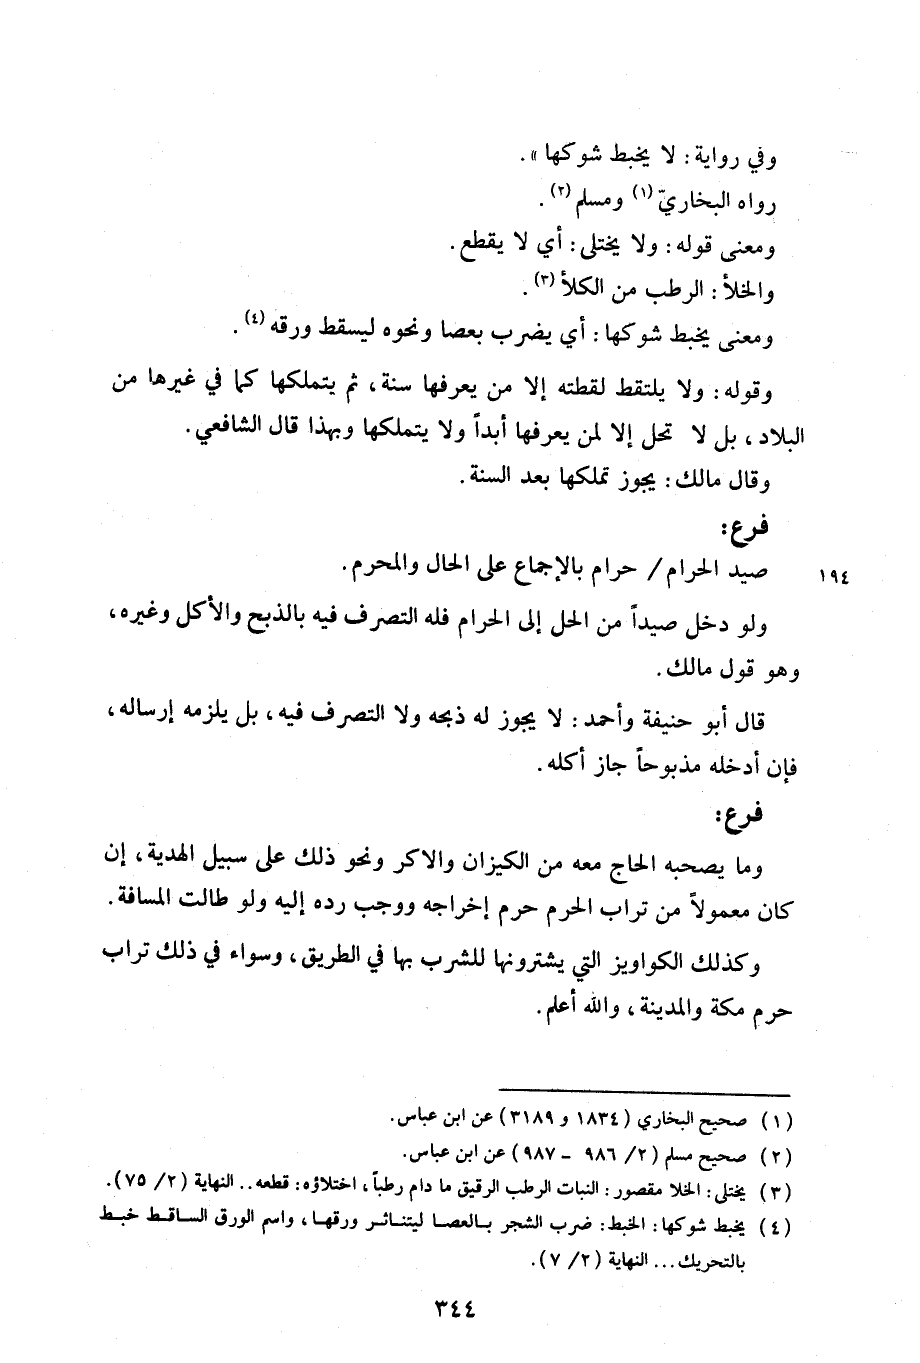 وفي رواية: لا يخبط شوكها».
رواه البخاريّ(١) ومسلم(٢).
ومعنى قوله: ولا يختلى: أي لا يقطع.
والخلأ: الرطب من الكلأ(٣).
ومعنى يخبط شوكها: أي يضرب بعصا ونحوه ليسقط ورقه(٤).
وقوله: ولا يلتقط لقطته إلا من يعرفها سنة، ثم يتملكها كما في غيرها من
البلاد، بل لا تحل إلا لمن يعرفها أبداً ولا يتملكها وبهذا قال الشافعي.
وقال مالك: يجوز تملكها بعد السنة.
فرع:
١٩٤ صيد الحرام/ حرام بالإجماع على الحال والمحرم.
ولو دخل صيداً من الحل إلى الحرام فله التصرف فيه بالذبح والأكل وغيره،
وهو قول مالك.
قال أبو حنيفة وأحمد: لا يجوز له ذبحه ولا التصرف فيه، بل يلزمه إرساله،
فإن أدخله مذبوحاً جاز أكله.
فرع:
وما يصحبه الحاج معه من الكيزان والاكر ونحو ذلك على سبيل الهدية، إن
كان معمولاً من تراب الحرم حرم إخراجه ووجب رده إليه ولو طالت المسافة.
وكذلك الكواويز التي يشترونها للشرب بها في الطريق، وسواء في ذلك تراب
حرم مكة والمدينة، والله أعلم.
(١) صحيح البخاري (١٨٣٤ و ٣١٨٩) عن ابن عباس.
(٢) صحيح مسلم (٢/ ٩٨٦ - ٩٨٧) عن ابن عباس.
(٣) يختلى: الخلا مقصور: النبات الرطب الرقيق ما دام رطباً، اختلاؤه: قطعه.. النهاية (٢/ ٧٥).
(٤) يخبط شوكها: الخبط: ضرب الشجر بالعصا ليتناثر ورقها، واسم الورق الساقط خبط
بالتحريك... النهاية (٢/ ٧).
٣٤٤